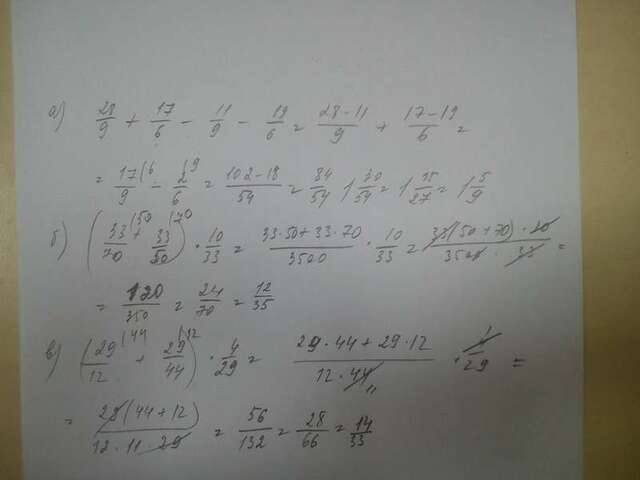 а) 28/9 + 17/6 - 11/9 - 19/6 = (28-11)/9 + (17-19)/6 =
= 17/9 |6 - 2/6 |9 = (102-18)/54 = 84/54 = 1 30/54 = 1 15/27 = 1 5/9
б) (33/70 |50 + 33/50 |70) · 10/33 = (33·50+33·70)/3500 · 10/33 = (33(50+70)·10)/(3500·33) =
= 120/350 = 24/70 = 12/35
в) (29/12 |44 + 29/44 |12) · 4/29 = (29·44+29·12)/(12·44 11) · 4 1/29 =
= 29(44+12)/(12·11·29) = 56/132 = 28/66 = 14/33